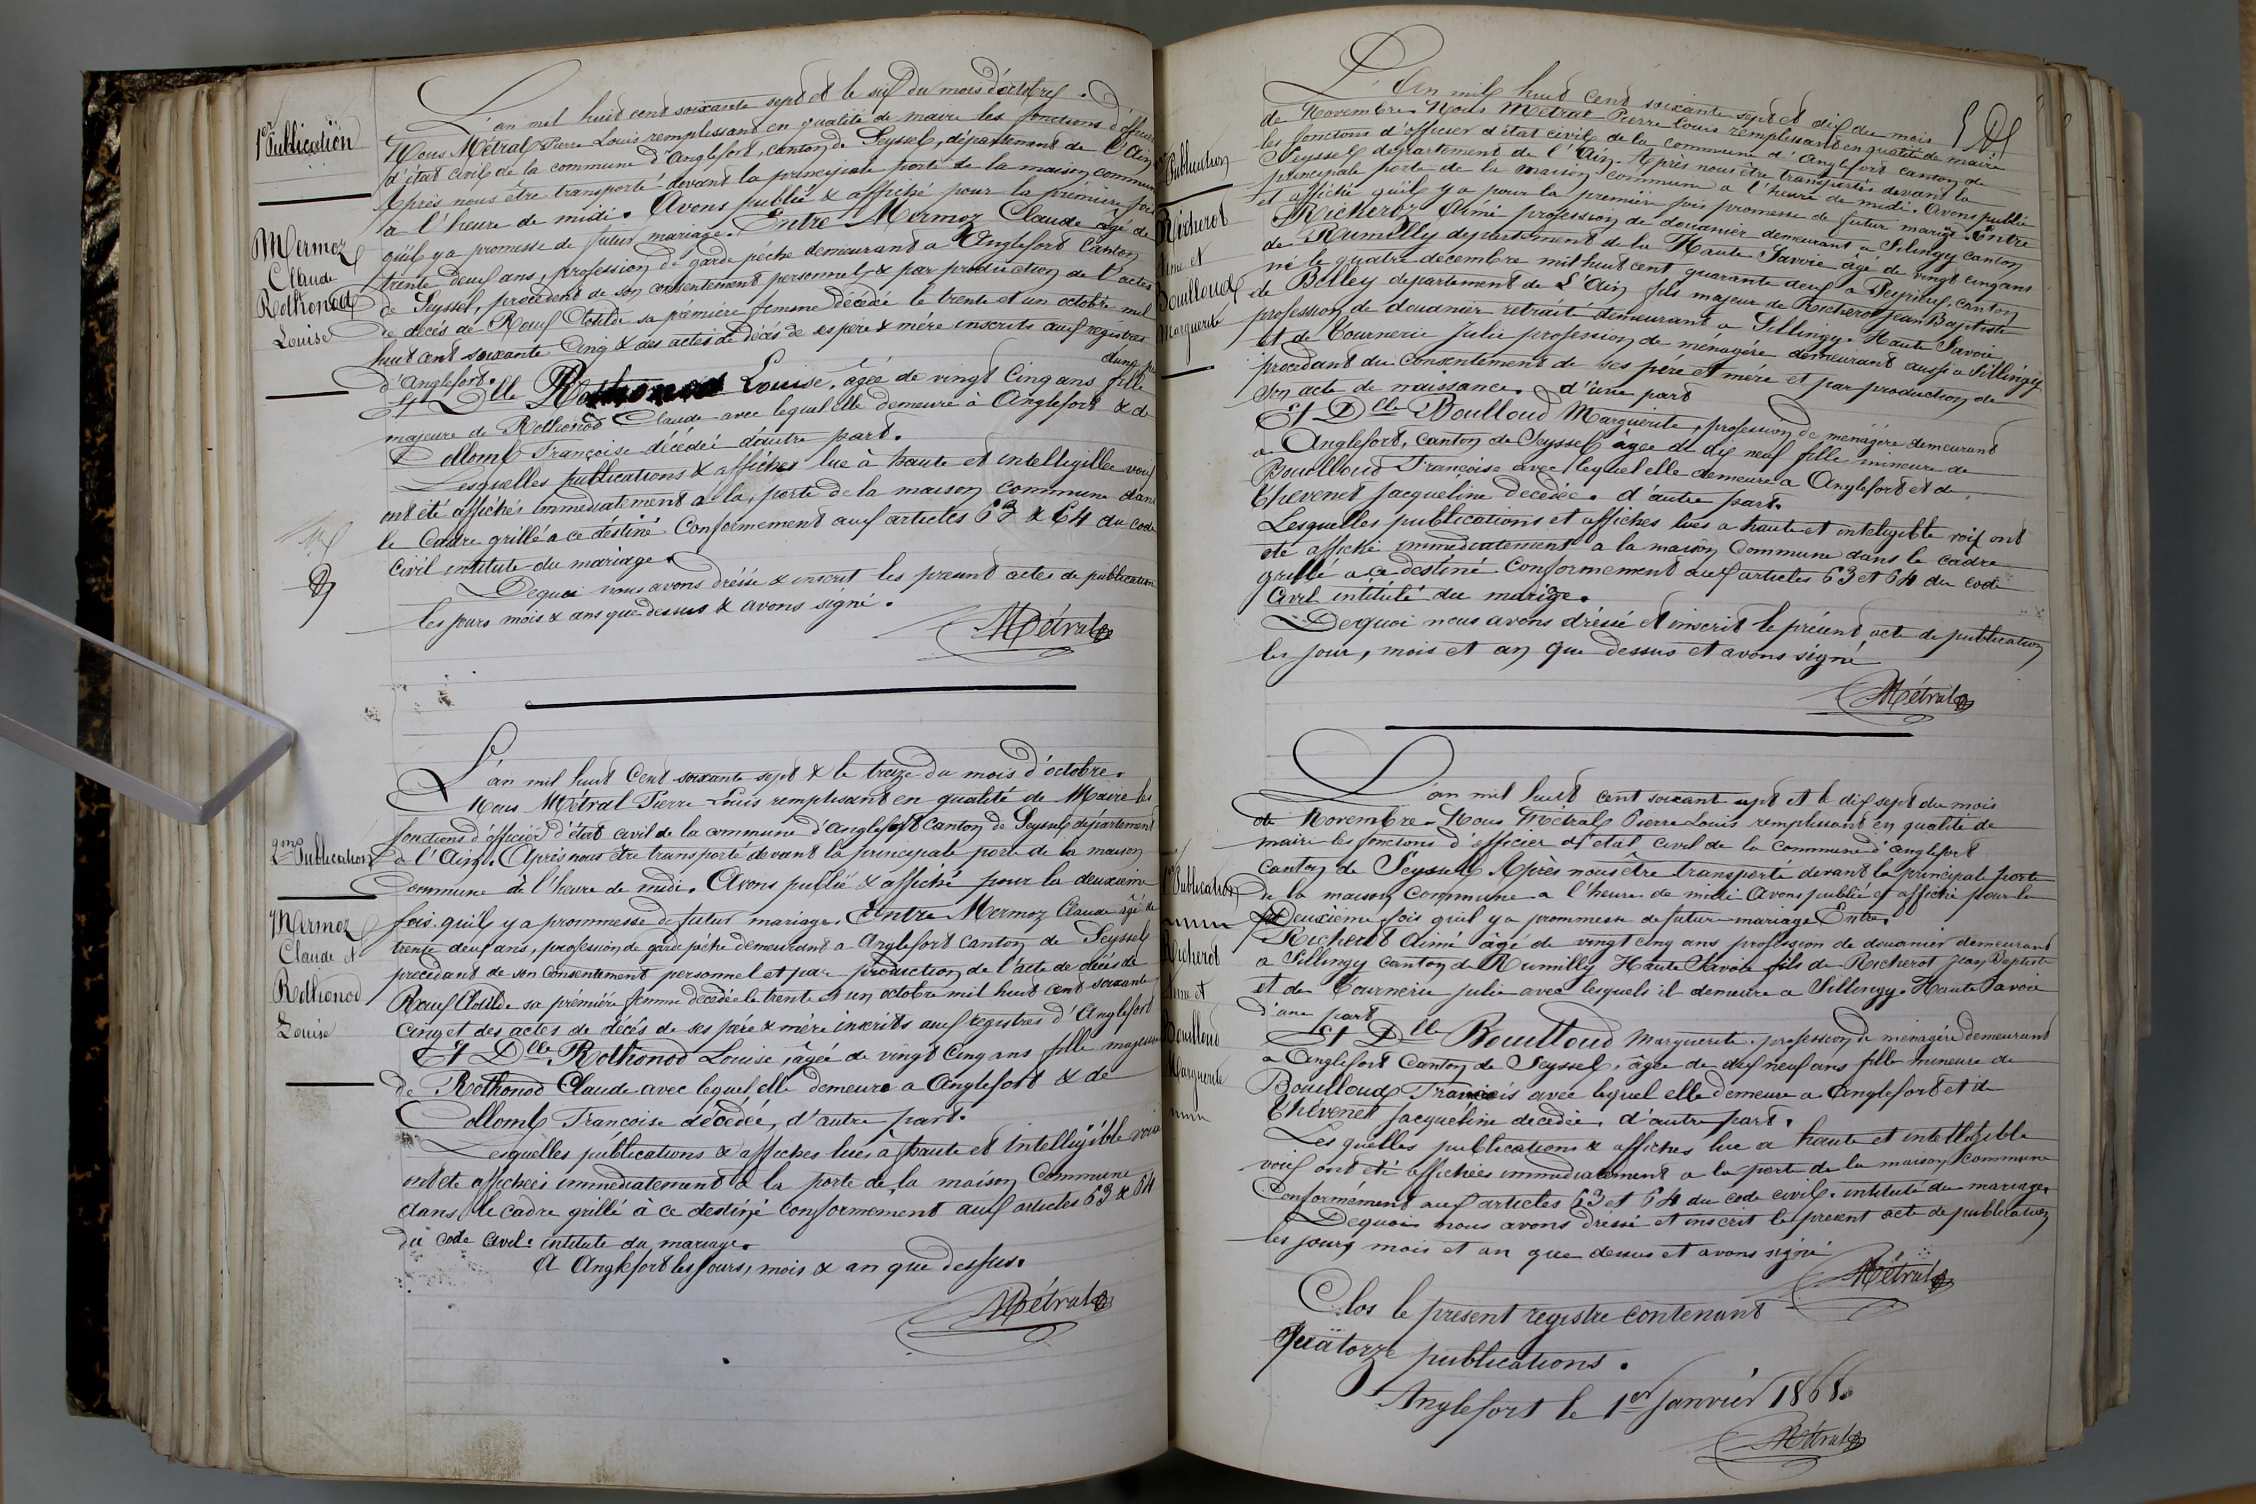 1er Publication
Mermoz
Claude
Rothonod
Louise
L'an mil huit cent soixante sept et le six du mois d'octobre.
Nous Métral Pierre Louis remplissant en qualité de maire les fonctions d'officier
d'état civil de la commune d'Anglefort, canton de Seyssel, département de l'Ain
Après nous être transporté devant la principale porte de la maison commune
a l'heure de midi. Avons publié & affiché pour la première fois
qu'il y a promesse de futur mariage. Entre Mermoz Claude âgé de
trente deux ans, profession de garde pêche demeurant a Anglefort Canton
de Seyssel, procedent de son consentement personnel & par production de l'actes
de décès de Roux Clotilde sa première femme décédé le trente et un octobre mil
huit cent soixante Cinq & des actes de décès de ses père & mère inscrits aux registres
d'Anglefort. d'une pa
Et Dlle Rothonod Louise, âgée de vingt Cinq ans fille
majeure de Rothonod Claude avec lequel elle demeure à Anglefort & de
Collomb Françoise décédéé d'autre part.
Lesquelles publications & affiches lue à haute et intelligille voix
ont été affichés immediatement a la porte de la maison commune dans
le Cadre grillé a ce déstiné Conformement aux articles 63 & 64 du code
Civil intitute du mariage.
Dequoi nous avons dréssé & inscrit les présent actes de publication
les jours mois & ans que dessus & avons signé.
Métral
2me Publication
Mermoz
Claude et
Rothonod
Louise
L'an mil huit Cent soixante sept & le treize du mois d'octobre.
Nous Métral Pierre Louis remplissant en qualité de Maire les
fonctions d'officier d'état civil de la commune d'Anglefort Canton de Seyssel département
de l'Ain. Après nous être transporté devant la principale porte de la maison
Commune à l'heure de midi. Avons publié & affiché pour la deuxieme
fois qu'il y a prommesse de futur mariage. Entre Mermoz Claude âgé de
trente deux ans, profession de garde pêche demeurant a Anglefort canton de Seyssel
procédant de son Consentement personnel et par production de l'acte de décès de
Roux Clotilde sa première femme décédée le trente et un octobre mil huit cent soixante
cinq et des actes de décès de ses père & mère inscrits aux registres d'Anglefort
Et Dlle Rothonod Louise, âgée de vingt Cinq ans fille majeure
de Rothonod Claude avec lequel elle demeure a Anglefort & de
Collomb Françoise décédée, d'autre part.
Lesquelles publications & affiches lues à haute et intelligible voix
ont été affichées immediatement à la porte de la maison Commune
dans le cadre grillé à ce destiné conformement aux articles 63 & 64
du code civil. intitute du mariage.
A Anglefort les jours, mois & an que dessus.
Métral
Publication
Richerot
Aimé et
Bouilloud
Marguerite
L'An mil huit Cent soixante sept et dix du mois
de Novembre. Nous Métral Pierre Louis remplissant en qualité de maire
les fonctions d'officier d'état civil de la commune d'Anglefort canton de
Seyssel département de l'Ain. Après nous être transportés devant la
principale porte de la maison commune a l'heure de midi. Avons publié
et affiché qu'il y a pour la première fois promesse de futur marige. Entre
Richerot Aimé profession de douanier demeurant a Silingy canton
de Rumilly departement de la Haute Savoie âgé de vingt cinq ans
né le quatre décembre mil huit cent quarante deux a Peyrieux canton
de Belley departement de L'Ain fils majeur de Richerot Jean Baptiste
profession de douanier retraité demeurant a Sillingy. Haute Savoie
et de Tournerie Julie profession de ménagère demeurant aussi a Sillingy
procedant du Consentement de ses père et mère et par production de
son acte de naissance. d'une part
Et Dlle Bouilloud Marguerite, profession de ménagère demeurant
a Anglefort, canton de Seyssel âgée de dix neuf fille mineure de
Bouilloud Françoise avec lequel elle demeure a Anglefort et de
Thevenet Jacqueline decédée. d'autre part.
Lesquelles publications et affiches lues a haute et inteligible voix ont
été affiché immediatement a la maison Commune dans le cadre
grillé a ce destiné Conformement aux articles 63 et 64 du code
Civil intitulé du mariage.
Dequoi nous avons dréssé et inscrit le présent acte de publication
les jour, mois et an que dessus et avons signé
Métral
Publication
Richerot
Aimé et
Bouilloud
Marguerite
L'an mil huit cent soixant sept et le dix sept du mois
de Novembre. Nous Métral Pierre Louis remplissant en qualité de
maire les fonctions d'officier d'état civil de la Commune d'Anglefort
canton de Seyssel. Après nous être transporté devant la principale porte
de la maison Commune a l'heure de midi Avons publié et affiché pour la
Deuxieme fois qu'il y a prommesse de futur mariage Entre.
Richerot Aimé âgé de vingt cinq ans profession de douanier demeurant
a Sillingy canton de Rumilly Haute Savoie fils de Richerot Jean Baptiste
et de Tournerie Julie avec lesquels il demeure a Sillingy. Haute Savoie
d'une part
Et Dlle Bouilloud Marguerite. profession de ménagère demeurant
a Anglefort Canton de Seyssel, âgée de dix neuf ans fille mineure de
Bouilloud François avec lequel elle demeure a Anglefort et de
Thévenet Jacqueline decédée, d'autre part.
Les quelles publications & affiches lue a haute et intelligible
voix ont été affichées immediatement a la porte de la maison commune
Conformément aux articles 63 et 64 du code civil. intitulé du mariage.
Dequoi nous avons dressé et inscrit le present acte de publication
les jours mois et an que dessus et avons signé
Métral
Clos le present registre contenant
Quatorze publications.
Anglefort le 1er Janvier 1868.
Métral